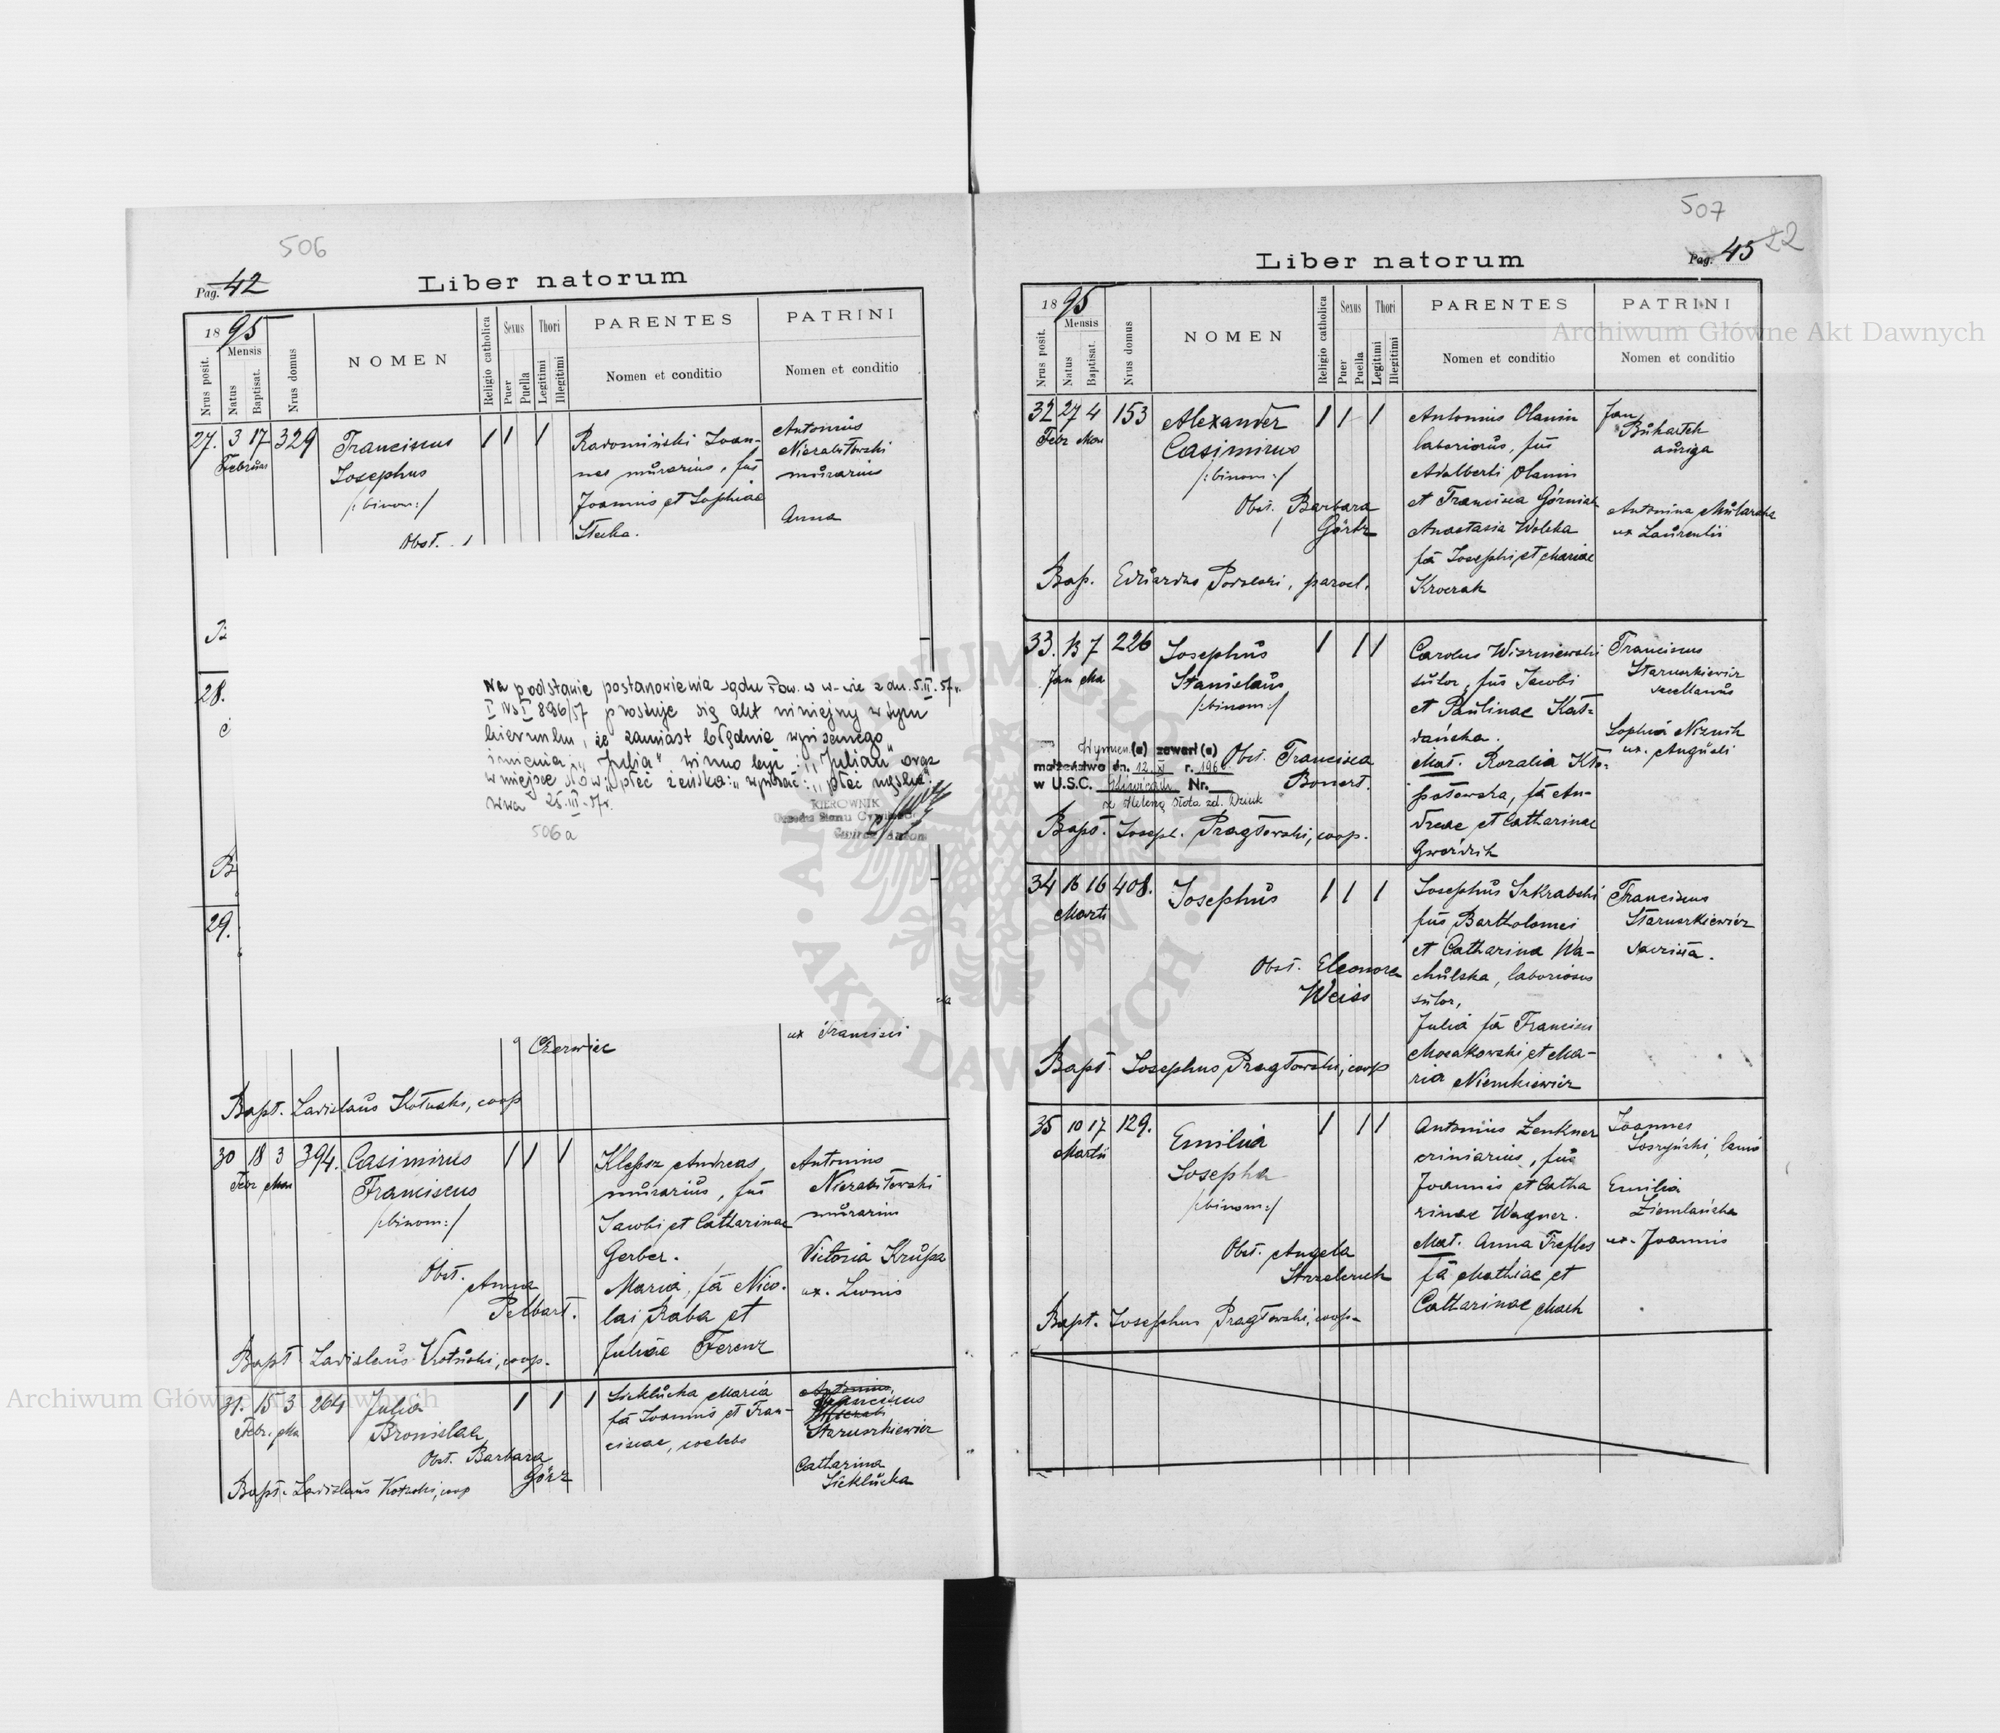 506
Pag. 42
Liber natorum
1895
Nrus posit.
Mensis
Natus
Baptisat.
Nrus domus
NOMEN
Religio catholica
Sexus
Puer
Puella
Thori
Legitimi
Illegitimi
PARENTES
Nomen et conditio
PATRINI
Nomen et conditio
27. 3 17 329
Februar
Franciscus
Josephus
/:binom:/
Obst.
Radomiński Joan-
nes murarius, fus
Joannis et Sophiae
Stecka.
Antonius
Niezabitowski
murarius
Anna
28.
Na podstawie postanowienia sądu Pow. w w-wie z dn. 5.II.57r.
I Ns I 896/57 prostuje się akt niniejszy w tym
kierunku, że zamiast błędnie wpisanego
imienia "Julia" winno być: "Julian" oraz
w miejsce słów "płeć żeńska" wpisać: "płeć męska".
W-wa 25.III.57r.
KIEROWNIK
Urzędu Stanu Cywilnego
506a
B
29.
Czerwiec
ux Francisci
Bapt. Ladislaus Kotuski, coop
30 18 3 394.
Febr Mar
Casimirus
Franciscus
/:binom:/
Obst.
Anna
Pelbart.
Klepsz Andreas,
murarius, fus
Jacobi et Catharinae
Gerber.
Maria, fa Nico-
lai Raba et
Juliae Ferenz
Antonius
Niezabitowski
murarius
Victoria Krupa
ux. Leonis
Bapt Ladislaus Kotuski, coop.
31. 15 3 264
Febr. Mar
Julia
Bronislaa
Obst. Barbara
Görz
Sieklucka Maria
fa Joannis et Fran-
ciscae, coelebs
Antonius
Franciscus
Staruszkiewicz
Catharina
Sieklucka
Bapt. Ladislaus Kotuski, coop
507
Pag. 43 22
Liber natorum
1895
Nrus posit.
Mensis
Natus
Baptisat.
Nrus domus
NOMEN
Religio catholica
Sexus
Puer
Puella
Thori
Legitimi
Illegitimi
PARENTES
Nomen et conditio
PATRINI
Nomen et conditio
32 27 4 153
Febr Mar
Alexander
Casimirus
/:binom:/
Obst. Barbara
Görtz
Antonius Olanin
laboriosus, fus
Adalberti Olanin
et Francisca Górniak
Anastasia Wolska
fa Josephi et Mariae
Kroczak
Jan
Buhartek
auriga
Antonina Mularska
ux Laurentii
Bap. Eduardus Podolski, paroch.
33. 13 7 226
Jan Mar
Josephus
Stanislaus
/:binom:/
Obst. Francisca
Bonert.
Wymien.(a) zawarł(a)
małżeństwo dn. 12.XI r. 196
w U.S.C. Gliwicach Nr.
z Heleną Słota zd. Dziuk
Carolus Wiszniewski
sutor, fus Jacobi
et Paulinae Kas-
dańska.
Mat. Rozalia Kło-
potowska, fa An-
dreae et Catharinae
Gwoździk
Franciscus
Staruszkiewicz
Sophia Niznik
ux. Angueli
Bapt. Joseph. Pragłowski, coop.
34 16 16 408.
Marti
Josephus
Obst. Eleonora
Weiss
Josephus Szkrabski
fus Bartholomei
et Catharina Wa-
chulska, laboriosus
sutor,
Julia fa Francisci
Mosakowski et Ma-
ria Niemkiewicz
Franciscus
Staruszkiewicz
sacrista.
Bapt. Josephus Pragłowski, coop
35 10 17 129.
Martii
Emilia
Josepha
/:binom:/
Obst. Angela
Strzelczuk
Antonius Zenkner
criniarius, fus
Joannis et Catha
rinae Wagner.
Mat. Anna Trefles
fa Mathiae et
Catharinae Mach
Joannes
Soszyński, lanio
Emilia
Ziemlańska
ux. Joannis
Bapt. Josephus Pragłowski, coop.
Archiwum Główne Akt Dawnych
Archiwum Główne Akt Dawnych
ARCHIWUM GŁÓWNE AKT DAWNYCH